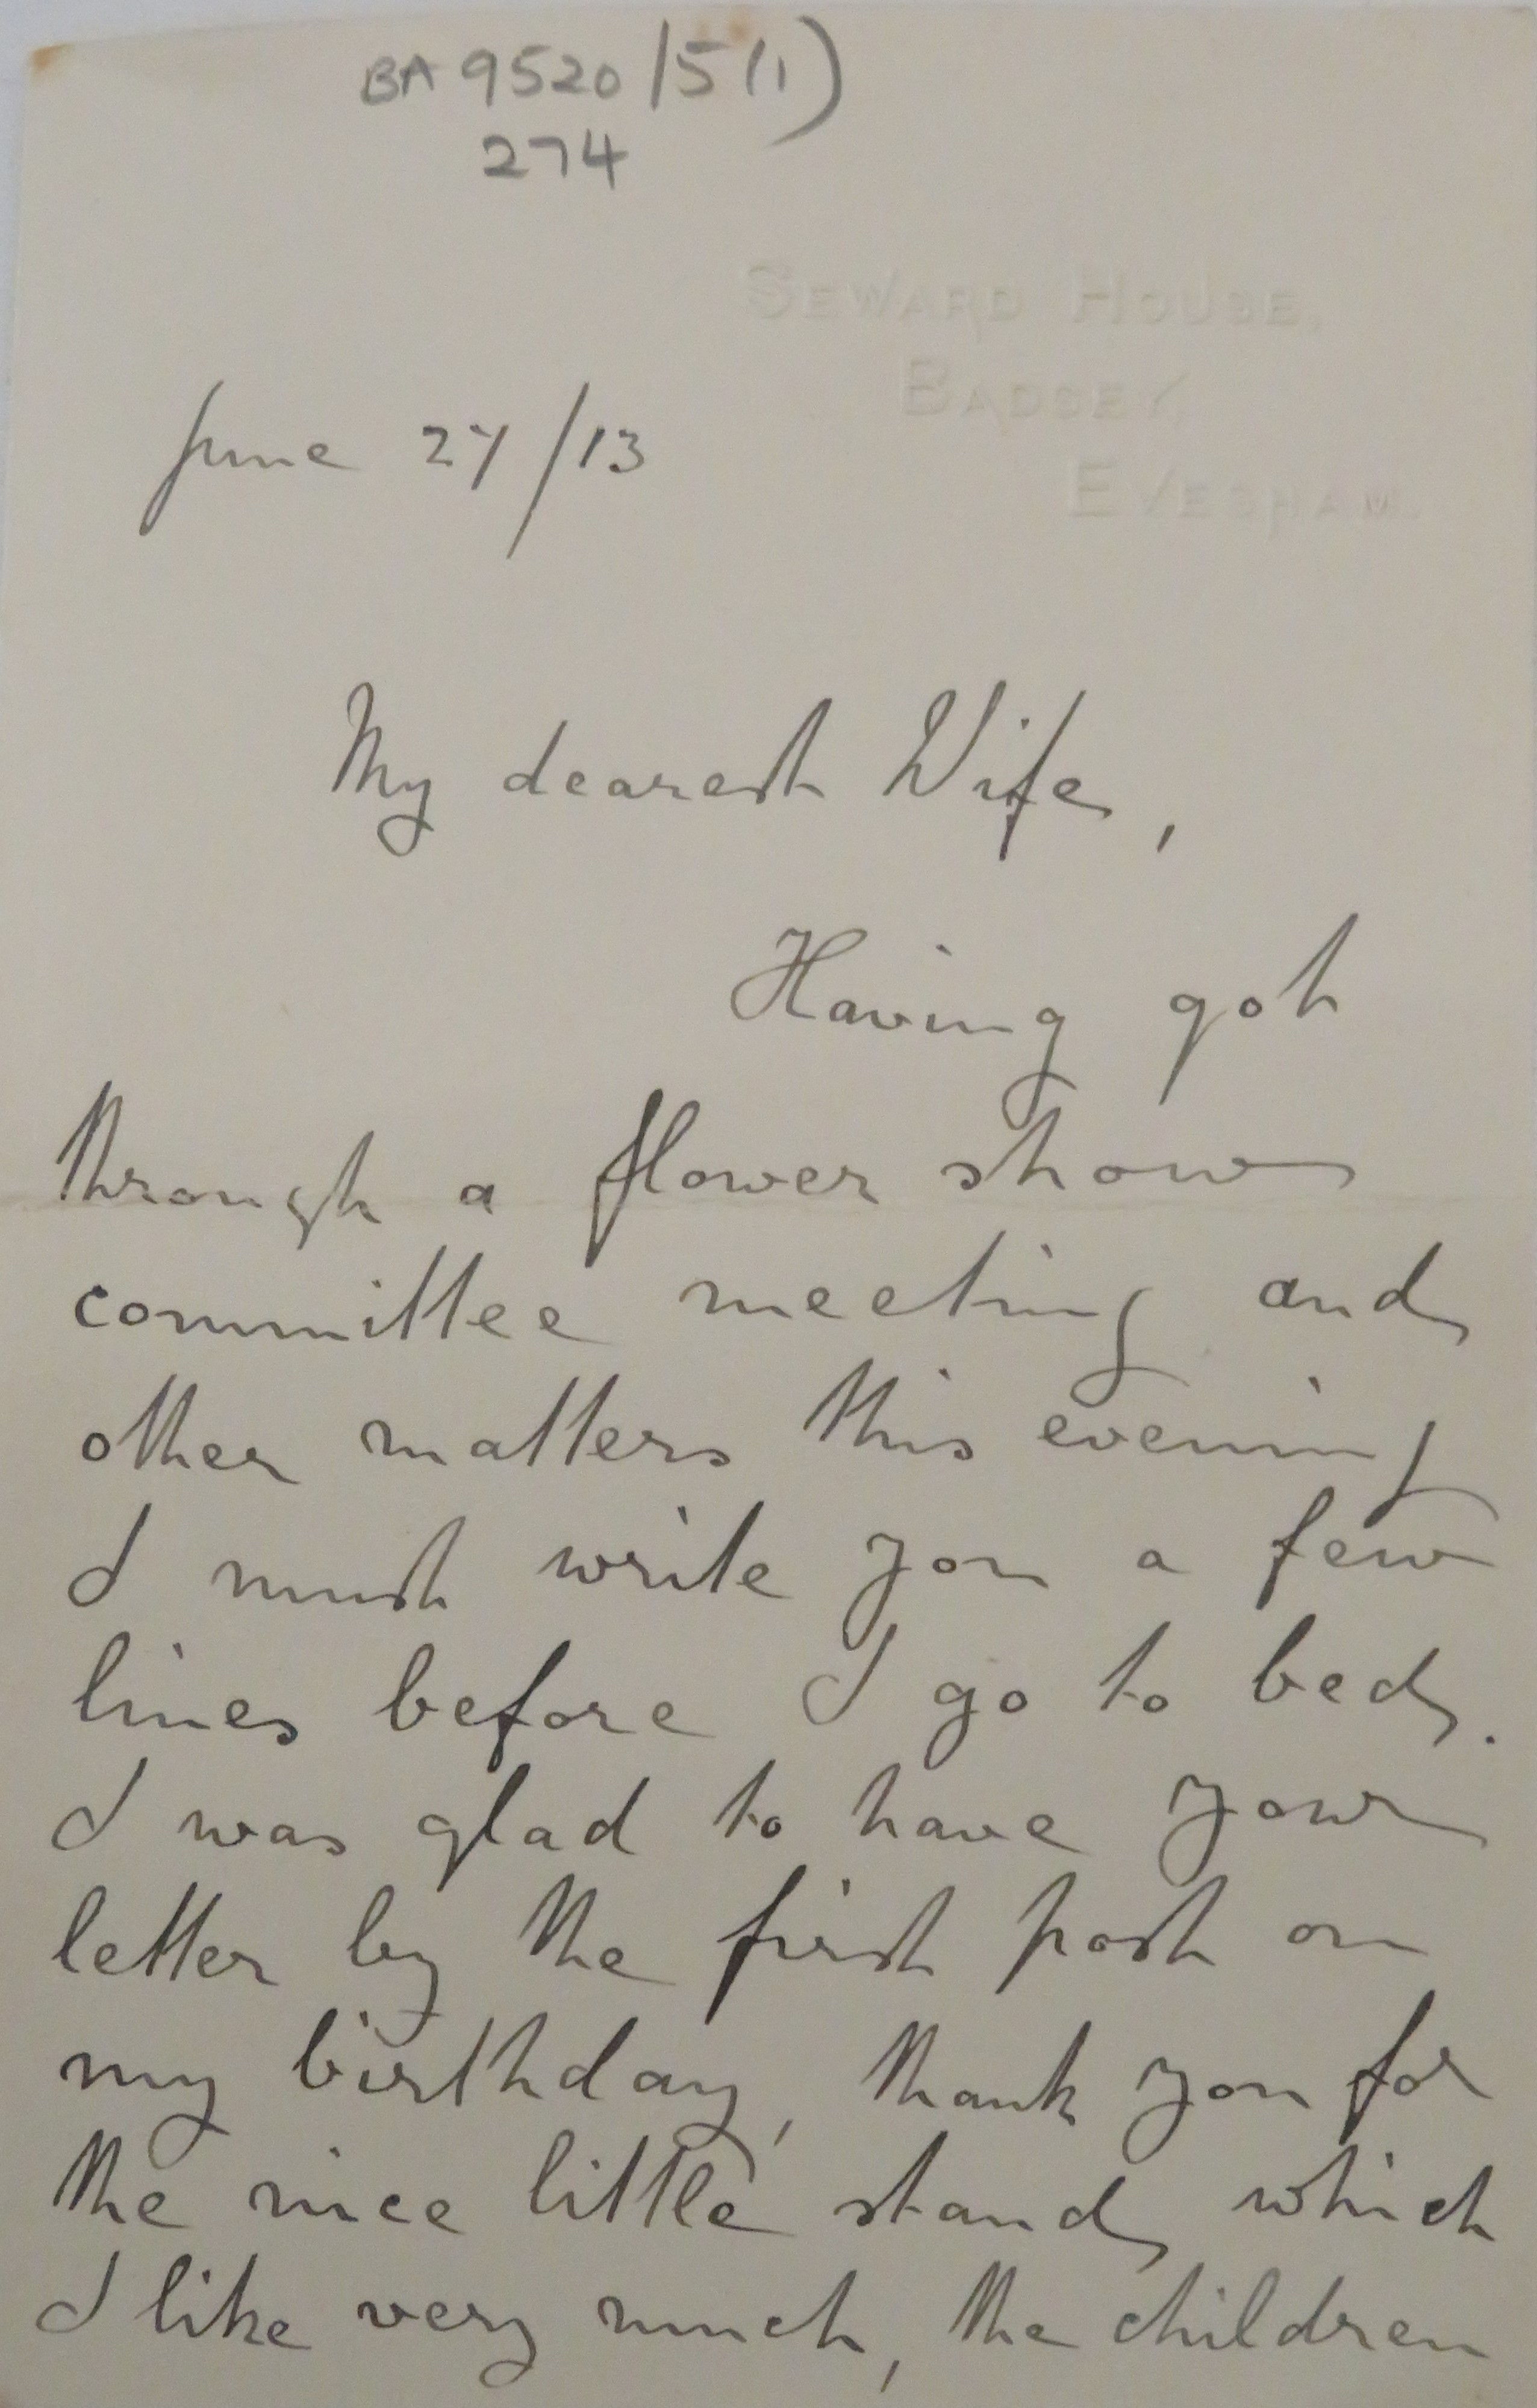 BA 9520/5(1)
274
SEWARD HOUSE,
BADSEY,
EVESHAM.
June 27/13
My dearest Wife,
Having got
through a flower show
committee meeting and
other matters this evening
I must write you a few
lines before I go to bed.
I was glad to have your
letter by the first post on
my birthday, thank you for
the nice little stand, which
I like very much, the children